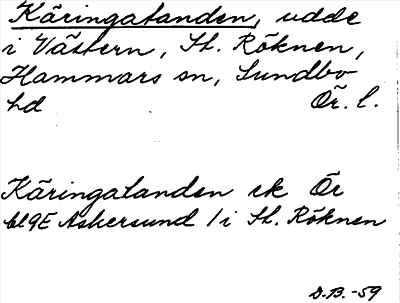 Käringatanden, udde
i Västern, St. Röknen,
Hammars sn, Sundbo
hd Ör. l.
Käringatanden ek Ör
bl 9E Askersund / i St. Röknen
D.B.-59